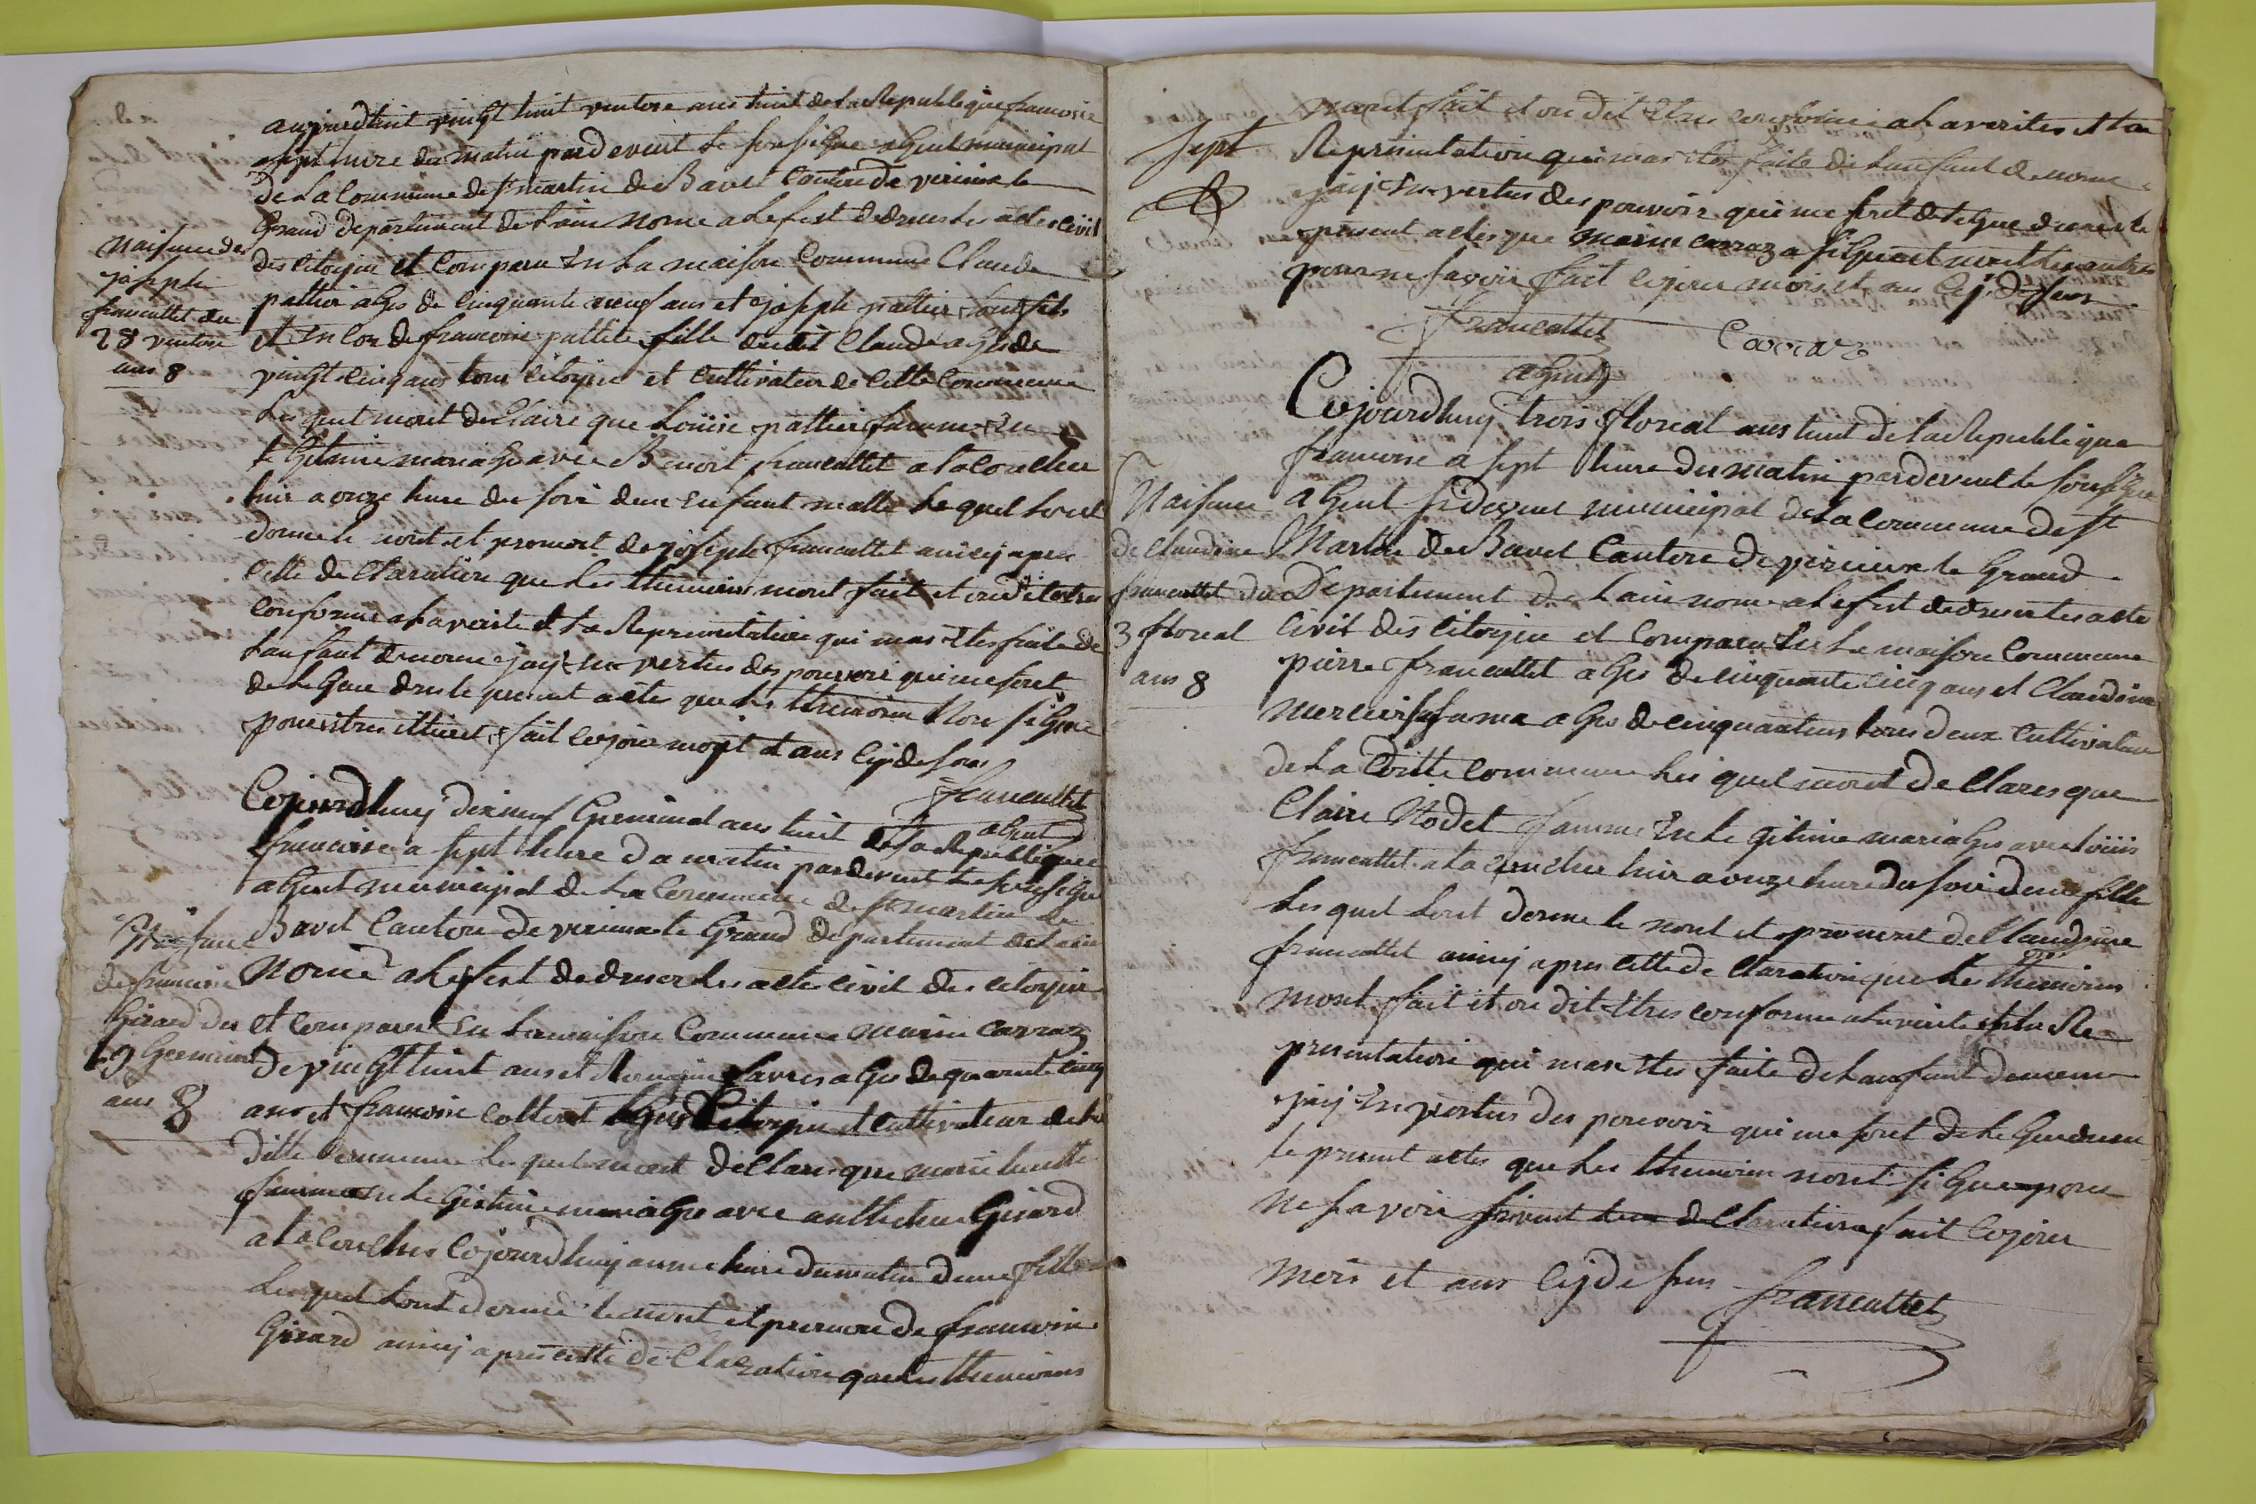 aujourdhuit vingt huit ventose ans huit de la Republique francoise
a sept hure du matin pardevent le sousigne agent municipal
de la Commune de st martin de Bavel Canton de virieux le
Grand departement de Lain nome a lefest dedreser les actes civil
des citoyin et comparu En la maison Commune Claude
pattier ages de cinquante neuf ans et joseph pattier sont fils
et En cor de francoise pattier fille dudit Claude agés de
vingt cinq ans tous citoyin et Cultivateur de cette Commune
Les quel mont declaire que Louise pattier famme En
le Gitime mariage avec Benoit francattet a la couchee
hier a onze hure du soir dun Enfant malle Le quel L'ont
donne le nont et prenont de joseph francattet aincy apres
cette de Claration que les themoins mont fait et ou dit Estre
conforme a la verite et la Representation qui mas Etes faite de
Lanfant denome jaÿ En vertus des pouvoir qui me sont
de Le Gue dresé le present actes que les themoin non signe
pour estres illiteré fait cejour moÿt et ans cÿ desus
francattet
agent
Naisance de
joseph
francattet du
28 ventose
ans 8
Cejourdhuy dixneuf Germinal ans huit de la Republique
francoise a sept hure du matin pardevent le sousigne
agent municipal de la Commune de st martin de
Bavel Canton de virieux le Grand departement de Lain
Nomé a lefest de dreser les actes civil des citoyin
et comparu En la maison Commune marin carraz
de vingt huit ans et favres ages de quarante cinq
ans et francoise collerat Citoyin et Cultivateur de la
ditte Commune Les quel mont declare que marie
famme En le Gitime mariage avec anthelme Girard
a la couchee cejourdhuy hure du matin dune fille
Les quel L'ont donné le nont et prenon de francoise
Girard aincy apres cette de Claration que les themoins
Naisance
de francoise
Girard du
19 Germinal
ans 8
mont fait et ou dit Etres conforme a la verites et la
Representation qui mas etes faite de Lanfant denome
jaÿ En vertus des pouvoir qui me sont de le Gue dresé le
present actes que marin carraz a signe et non les autres
pour ne savoir fait cejour mois et ans cÿ desus
francattet Carraz
agent
sept
Cejourdhuy trois floreal ans huit de la Republique
francoise a sept hure du matin pardevent le sousigne
agent sidevent municipal de la Commune de st
Martin de Bavel Canton de virieux le Grand
Departement de Lain nome a lefest dedreser les acte
civil des citoyin et comparu En la maison Commune
pierre francattet ages de cinquante cinq ans et Claudine
mercier sa fama ages de cinquante tous deux Cultivateur
de La ditte Commune Les quel mont de Clares que
Claire Nodet famme En le Gitime mariages avec Louis
francattet a la couchee hier a onze hure du soir dune fille
Les quel L'ont donne le nont et prenont de Claudine
francattet aincy apres cette de Claration que Les themoins
mont fait et ou dit Etres conforme a la verite et la Re
presentation qui mas Etes faite de Lanfant denome
jaÿ En vertus des pouvoir qui me sont de Le Gue dresé
le present actes que Les themoin nont signe pour
ne savoir de Claration fait cejour
mois et ans cÿ desus francattet
Naisance
de Claudine
francattet du
3 floreal
ans 8